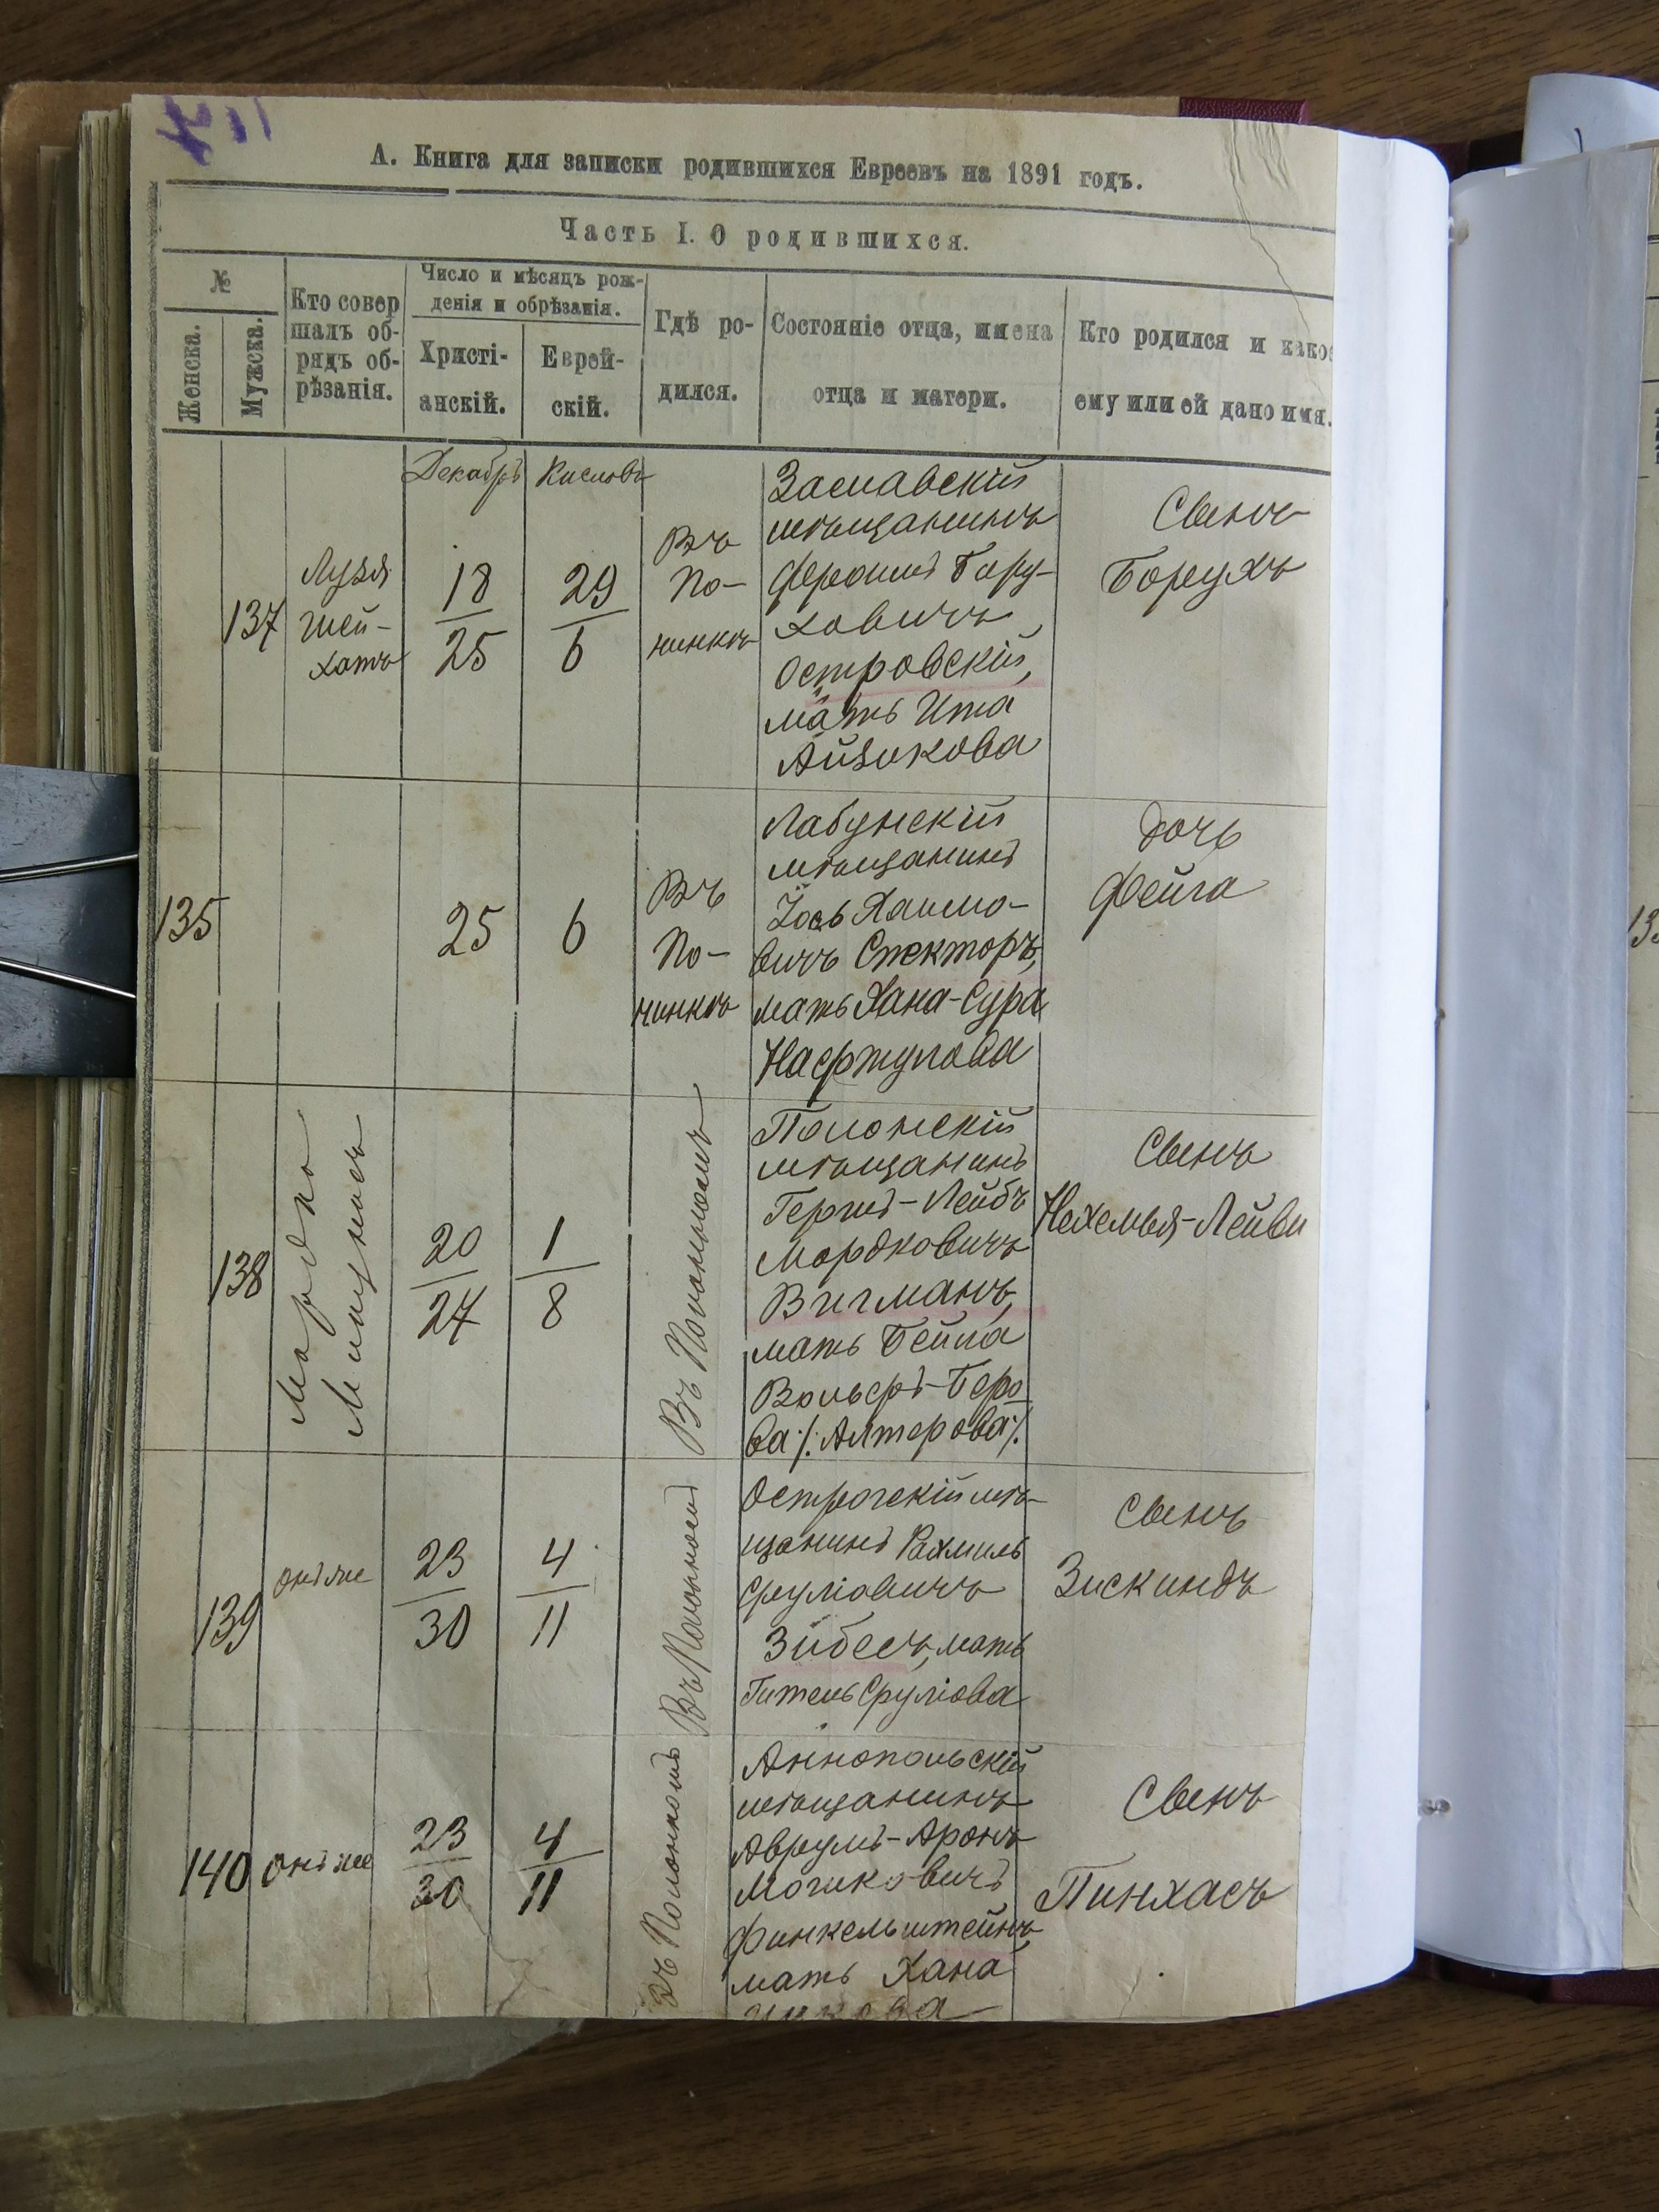 А. Книга для записки родившихся Евреевъ на 1891 годъ.
Часть I. О родившихся.
№
Женска.
Мужска.
Кто совер
шалъ об-
рядъ об-
рѣзанія.
Число и мѣсяцъ рож-
денія и обрѣзанія.
Христі-
анскій.
Еврей-
скій.
Гдѣ ро-
дился.
Состояніе отца, имена
отца и матери.
Кто родился и како
ему или ей дано имя.
Декабрь
Кислевъ
137
Лузя
Шей-
хатъ
18
25
29
6
Въ
По-
нинкѣ
Заславскій
мѣщанинъ
Фроимъ Бору-
ховичъ
Островскій,
мать Ита
Айзикова
Сынъ
Борухъ
135
25
6
Въ
По-
нинкѣ
Лабунскій
мѣщанинъ
Іось Хаимо-
вичъ Спекторъ,
мать Хана-Сура
Нафтулова
дочь
Фейга
138
Мордко
20
27
1
8
Въ Полонномъ
Полонскій
мѣщанинъ
Гершъ-Лейбъ
Мордковичъ
Вигманъ,
мать Бейла
Вольфъ-Беро
ва /: Алтерова :/
Сынъ
Нехемья-Лейви
139
онъ же
23
30
4
11
Въ Полонномъ
Острогскій мѣ-
щанинъ Рахмиль
Сруліовичъ
Зибесъ, мать
Гитель Сруліова
Сынъ
Зискиндъ
140
онъ же
23
30
4
11
Въ Полонномъ
Аннопольскій
мѣщанинъ
Аврумъ-Аронъ
Мошковичъ
Финкельштейнъ,
мать Хана
Сынъ
Пинхасъ